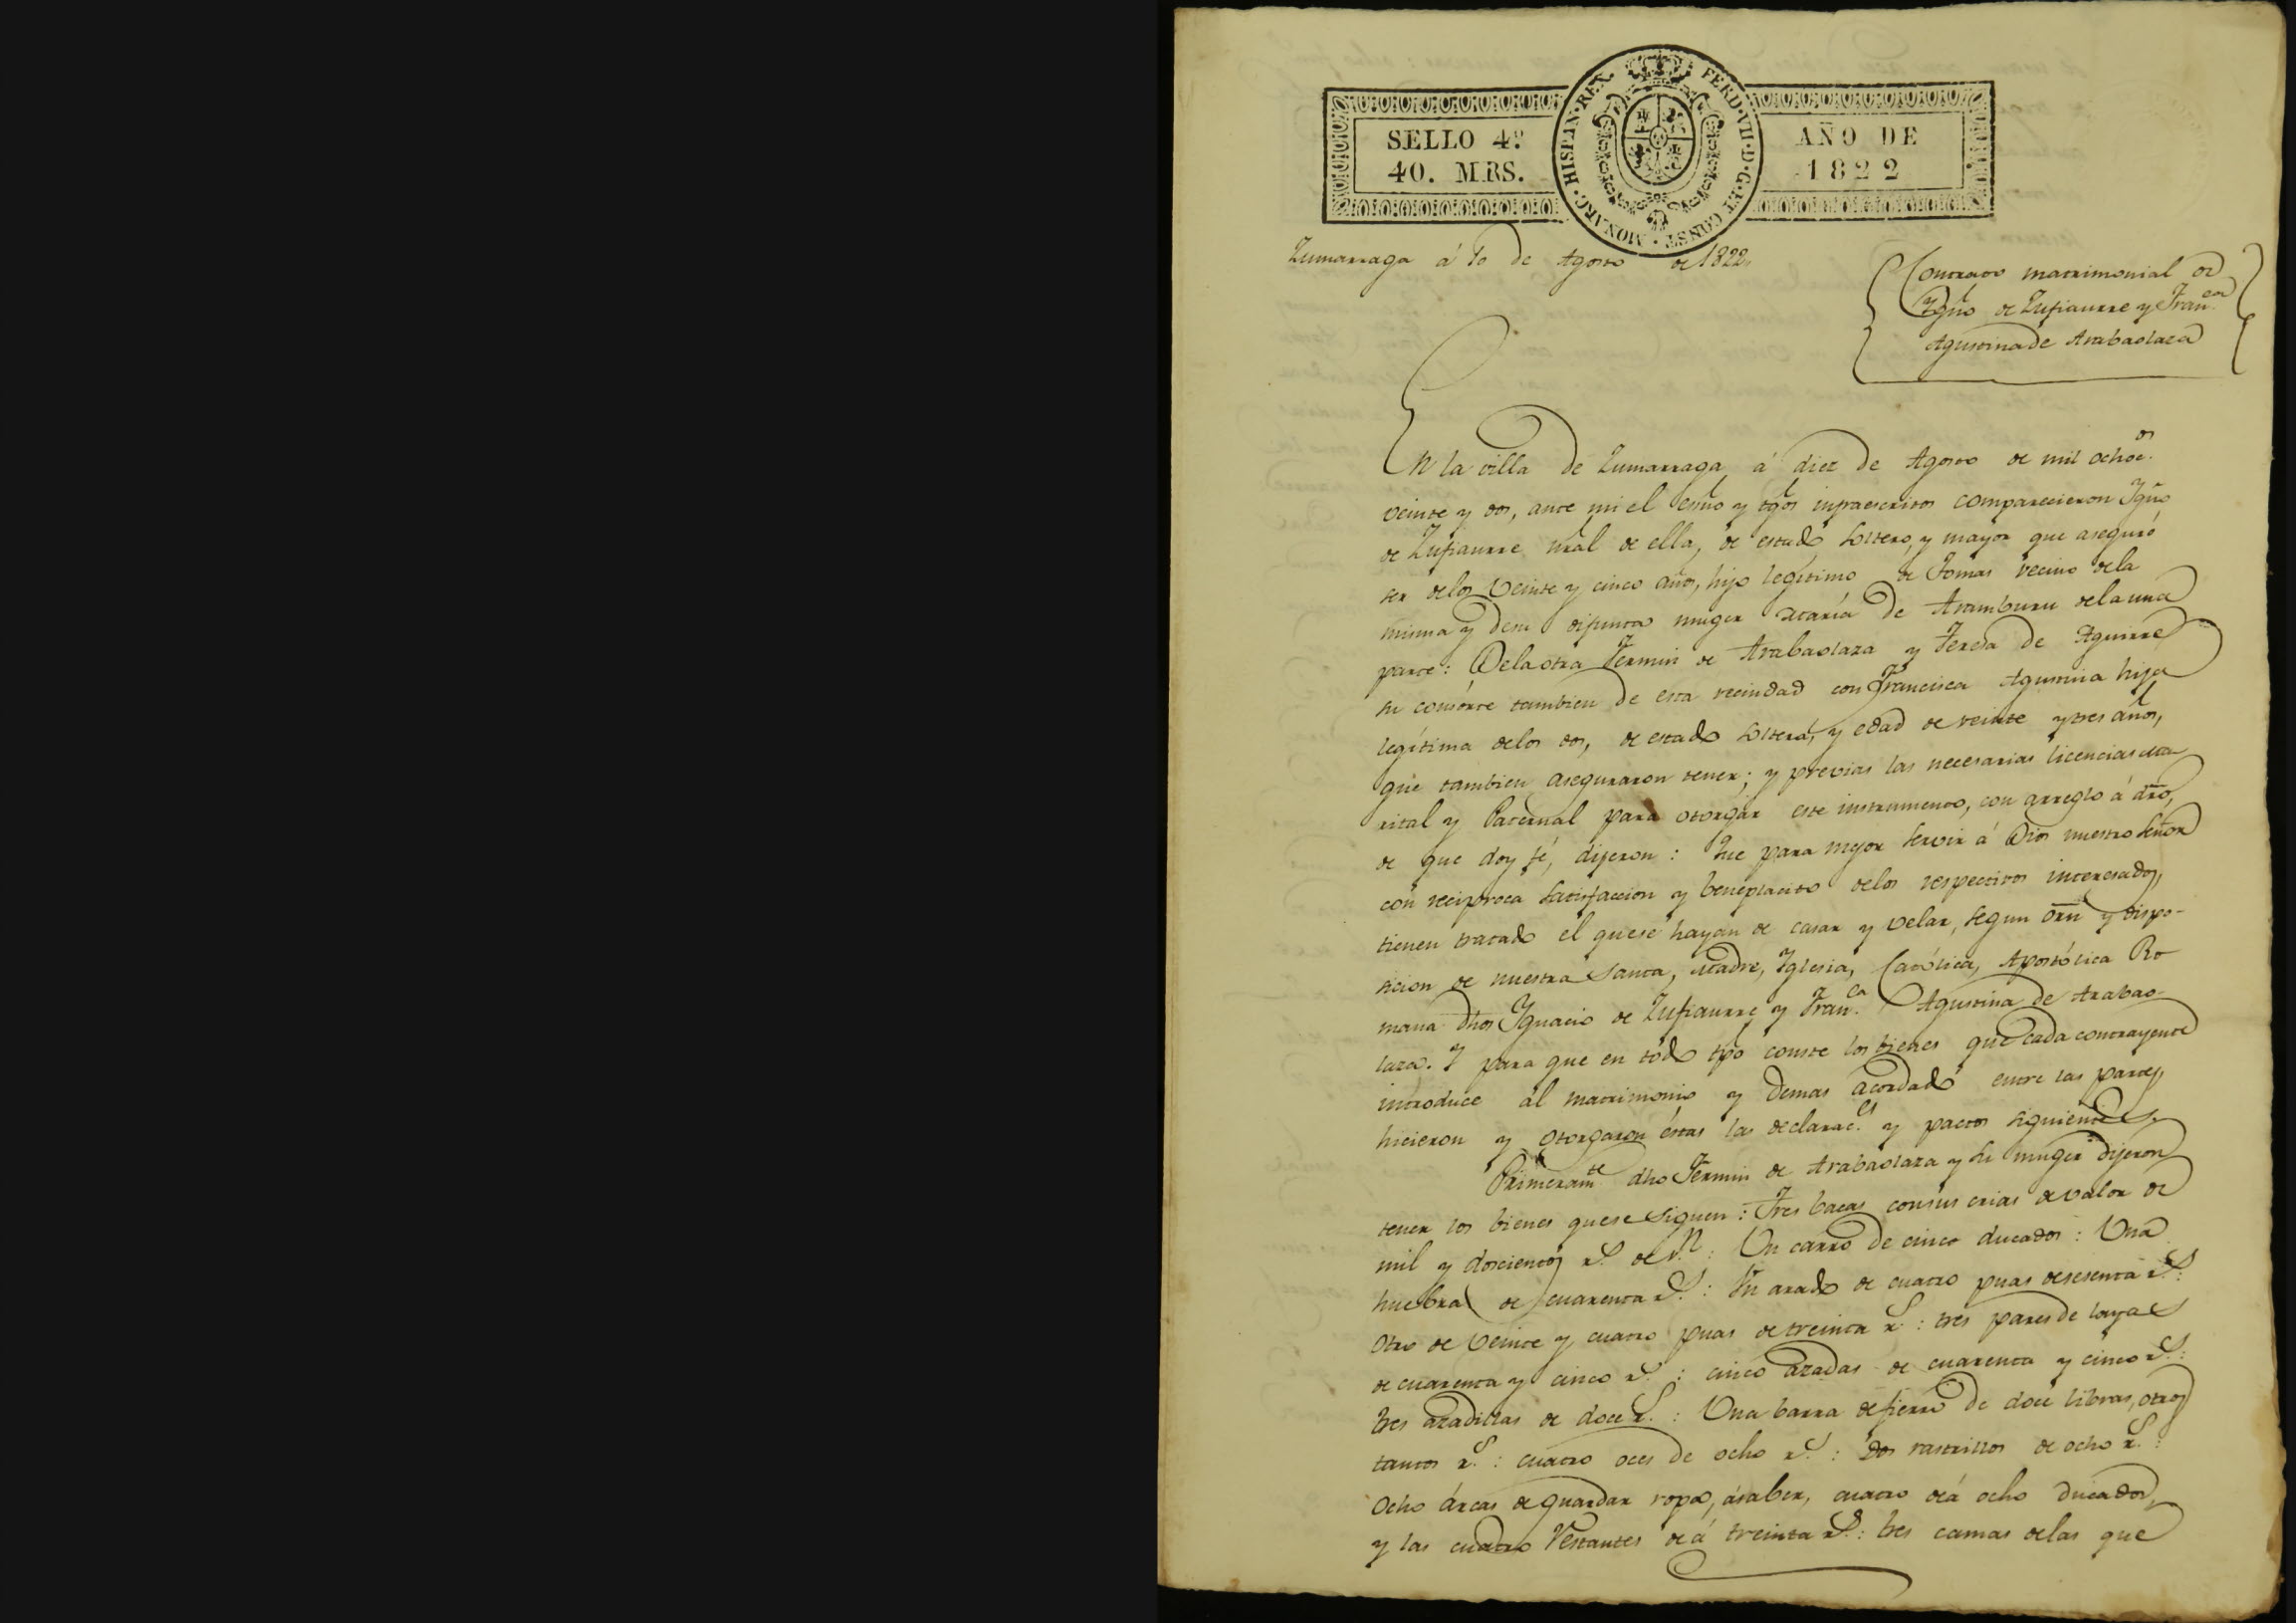 SELLO 4º
40. MRS.
HISPAN·REX. FERD·VII·D·G·ET CONST·MONARC·
AÑO DE
1822
Zumarraga á 10 de Agosto de 1822
Contrato matrimonial de
Ygnº de Zufiaurre y Franca
Agustina de Arabaolaza
En la villa de Zumarraga á diez de Agosto de mil ochocos
veinte y dos, ante mi el essno y tgos infraescritos comparecieron Ygnº
de Zufiaurre nral de ella, de estado soltero, y mayor que aseguró
ser delos veinte y cinco años, hijo legítimo de Tomas vecino dela
misma y desu difunta muger María de Aramburu dela una
parte: Dela otra Fermin de Arabaolaza y Teresa de Aguirre
su consórte tambien de esta vecindad con Francisca Agustina hija
legítima delos dos, de estado soltera, y edad de veinte y tres años,
que tambien aseguraron tener; y previas las necesarias licencias Ma-
rital y Paternal para otorgar este instrumento, con arreglo á dro,
de que doy fé, dijeron: Que para mejor servir á Dios nuestro Señor
con reciproca satisfaccion y beneplacito delos respectivos interesados,
tienen tratado el quese hayan de casar y velar, segun orn y dispo-
sicion de nuestra Santa, Madre, Yglesia, Católica, Apostólica Ro-
mana dhos Ygnacio de Zufiaurre y Franca Agustina de Arabao-
laza. Y para que en todo tpo conste los bienes que cada contrayente
introduce al matrimonio y demas acordado entre las partes,
hicieron y otorgaron éstas las declaraces y pactos siguientes.
Primeramte dho Fermin de Arabaolaza y su muger dijeron
tener los bienes quese siguen: Tres bacas consus crias de valor de
mil y doscientos rs. de vn: Un carro de cinco ducados: Una
huebra de cuarenta rs.: Un arado de cuatro puas desesenta rs.:
Otro de veinte y cuatro puas de treinta rs.: tres pares de layas
de cuarenta y cinco rs.: cinco azadas de cuarenta y cinco rs.:
tres azadillas de doce rs.: Una barra de fierro de doce libras, otros
tantos rs.: cuatro oces de ocho rs.: Dos rastrillos de ocho rs.:
Ocho árcas de guardar ropa, ásaber, cuatro deá ocho ducados,
y las cuatro restantes deá treinta rs.: tres camas delas que